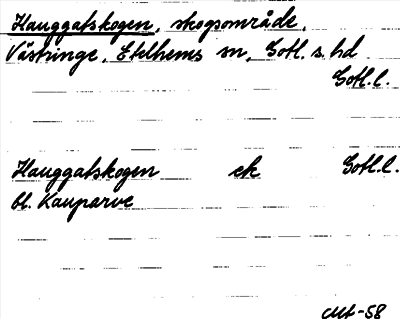 Hauggatskogen, skogsområde,
Västringe, Etelhems sn, Gotl. s. hd
Gotl. l.
Hauggatskogen ek Gotl. l.
bl. Kauparve
-58